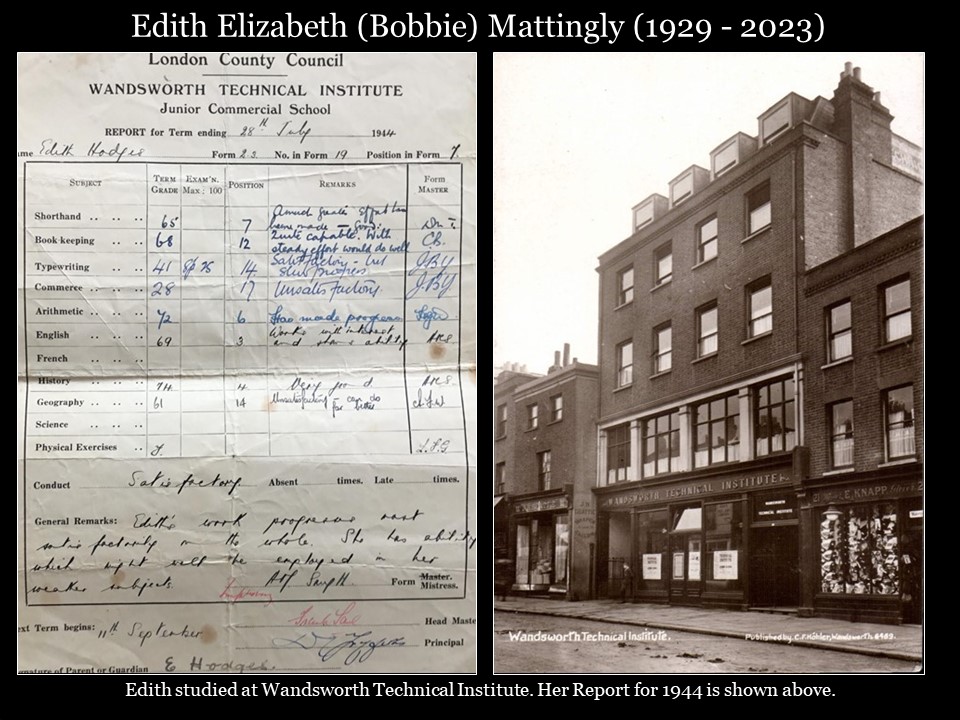 Edith Elizabeth (Bobbie) Mattingly (1929 - 2023)
London County Council
WANDSWORTH TECHNICAL INSTITUTE
Junior Commercial School
REPORT for Term ending 28th July 1944
ame Edith Hodges Form 2.3. No. in Form 19 Position in Form 7.
SUBJECT TERM GRADE EXAM'N. Max: 100 POSITION REMARKS Form MASTER
Shorthand .. .. .. 65 7 A much greater effort has been made - Good.
Book-keeping .. .. 68 12 Quite capable. With steady effort would do well C.B.
Typewriting .. .. 41 Sp 25 14 Satisfactory - but slow progress J.B.Y
Commerce .. .. .. 28 17 Unsatisfactory. J.B.Y
Arithmetic .. .. .. 72 6 Has made progress
English .. .. .. 69 3 Works with interest and shows ability A.M.S.
French .. .. ..
History .. .. .. 74 4 Very good A.M.S.
Geography .. .. .. 61 14 Unsatisfactory - can do far better
Science .. .. ..
Physical Exercises .. L.F.G.
Conduct Satisfactory. Absent times. Late times.
General Remarks: Edith's work progresses most
satisfactorily on the whole. She has ability
which might well be employed in her
weaker subjects. Form Master. Mistress.
Head Maste
ext Term begins: 11th September Principal
gnature of Parent or Guardian E Hodges.
WANDSWORTH TECHNICAL INSTITUTE
WANDSWORTH TECHNICAL INSTITUTE
E. KNAPP
Wandsworth Technical Institute.
Published by C.F. Köhler, Wandsworth. 6489.
Edith studied at Wandsworth Technical Institute. Her Report for 1944 is shown above.